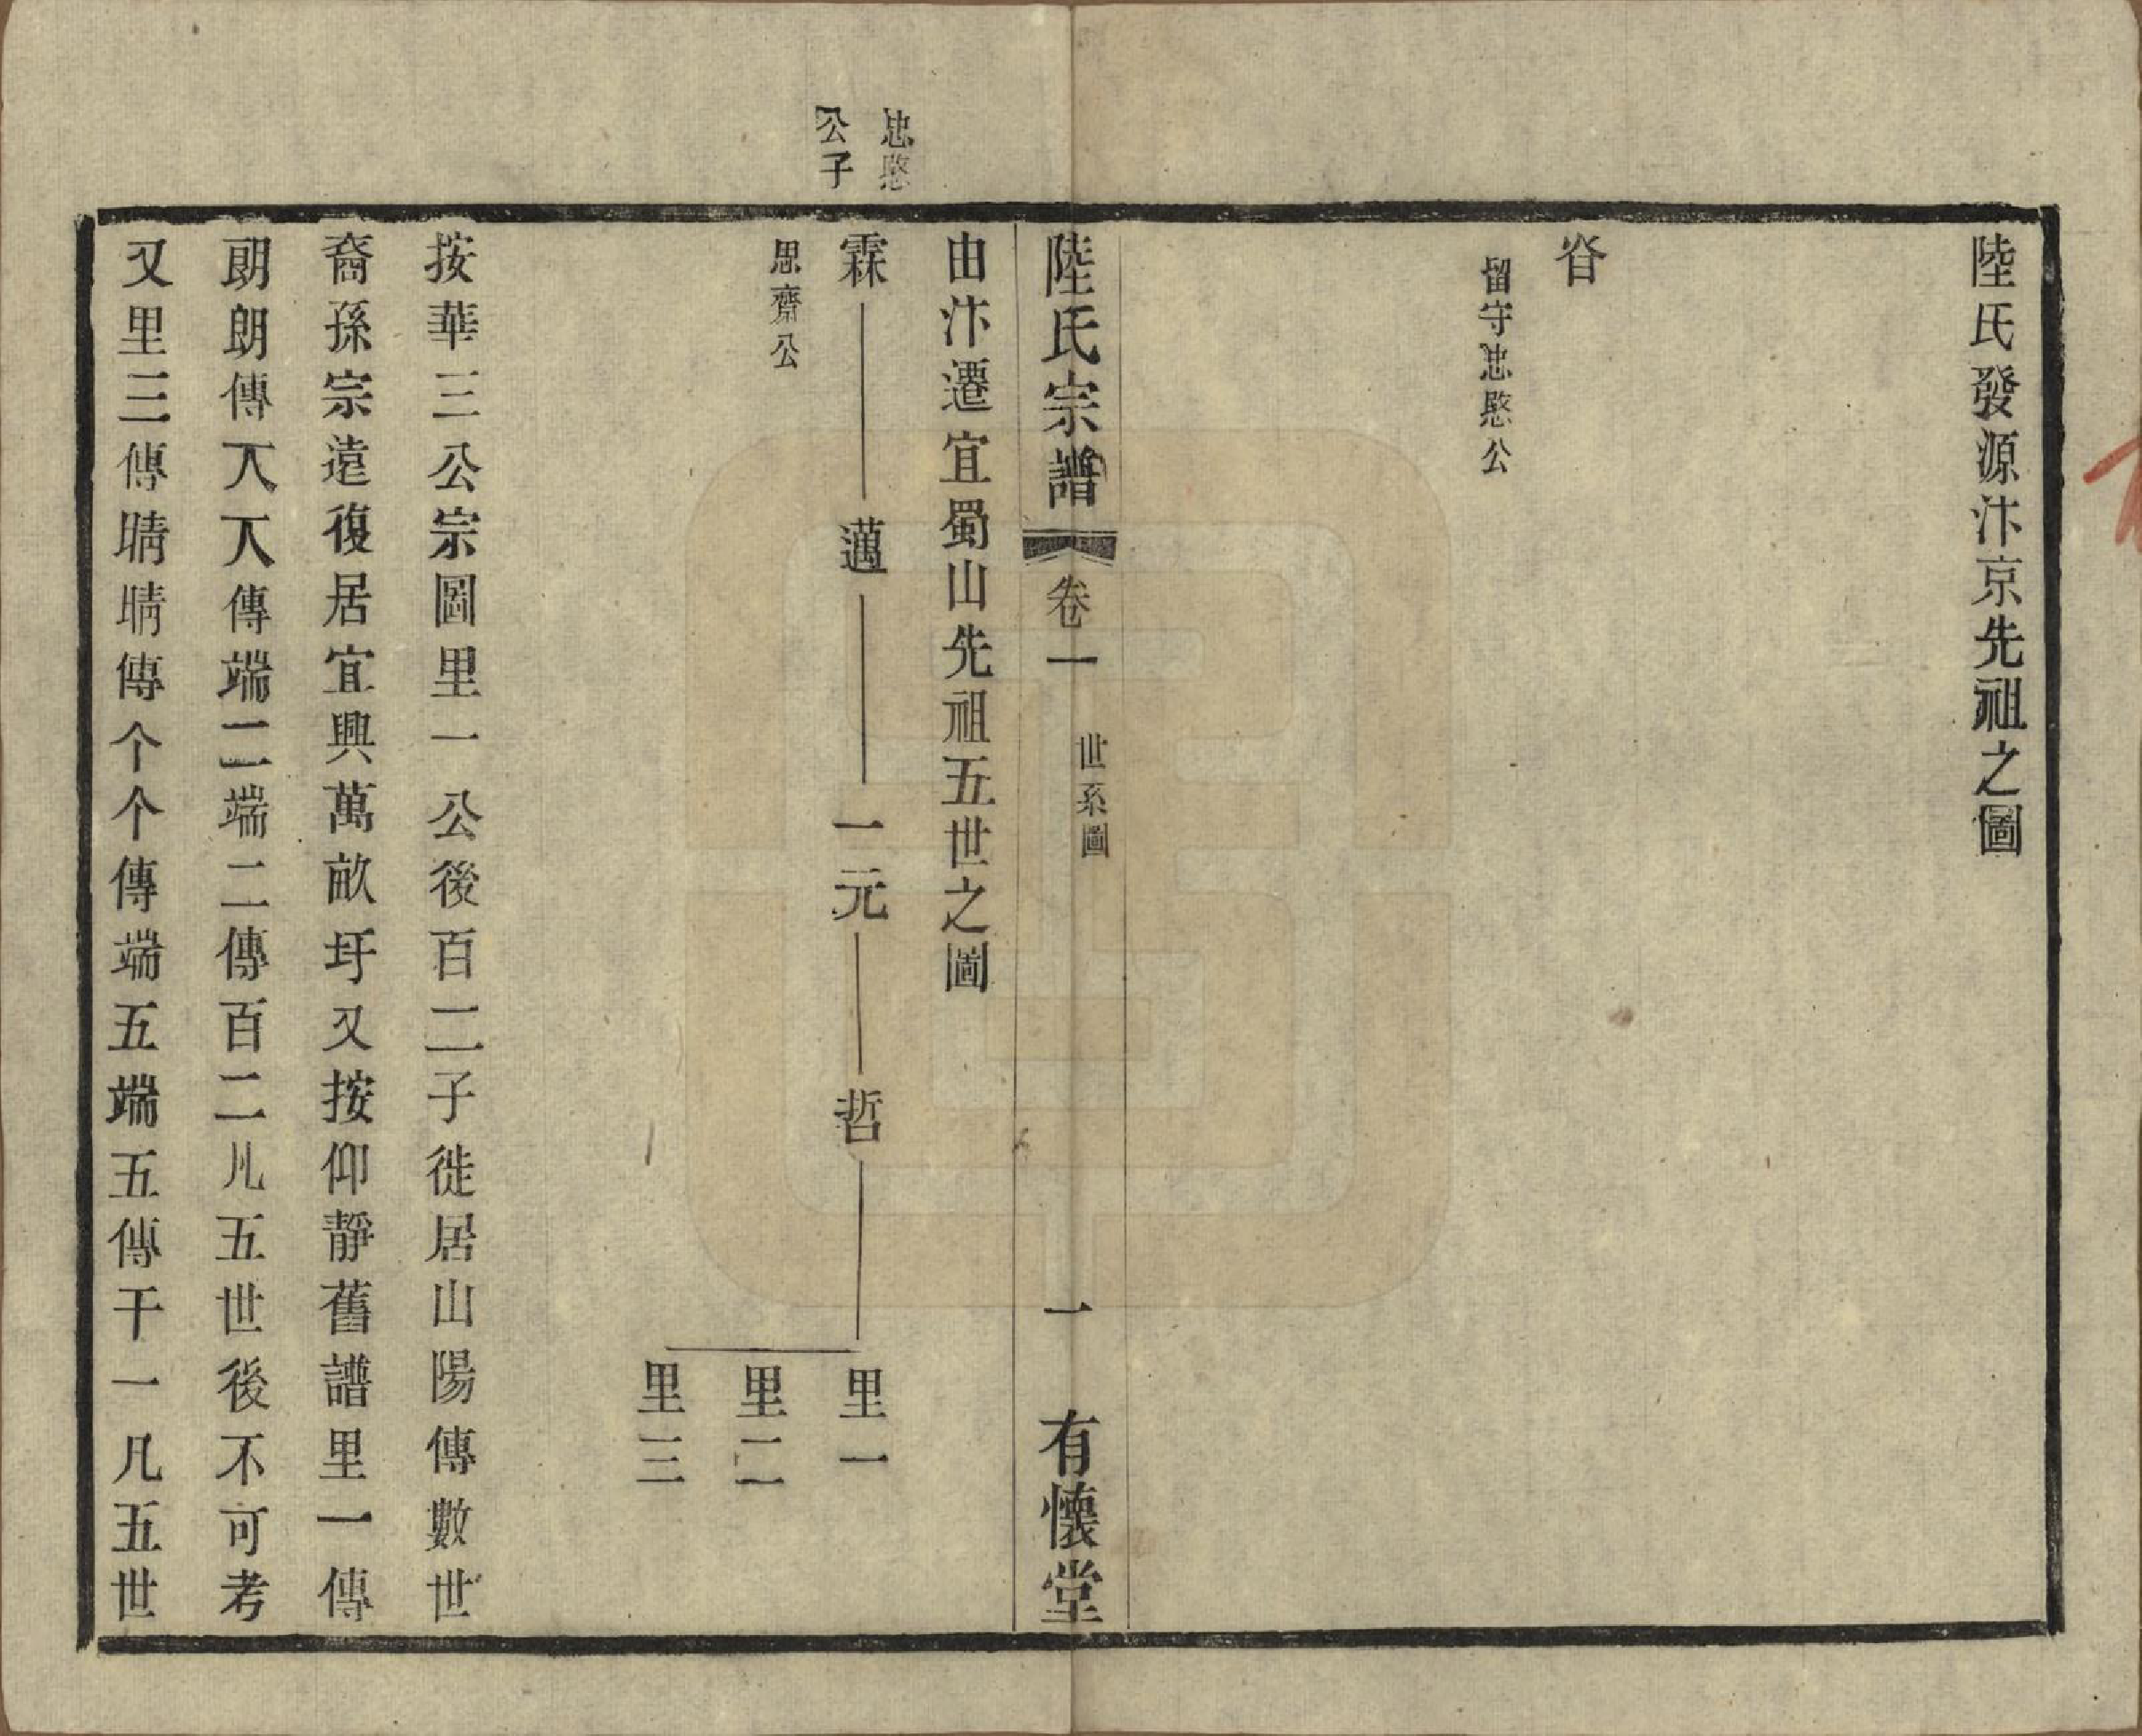 陸氏發源汴京先祖之圖
㫺
留守忠愍公
陸氏宗譜 卷一 世系圖 一 有懷堂
由汴遷宜蜀山先祖五世之圖
忠愍
公子
霖 邁 一元 哲 里一
里二
里三
思齋公
按華三公宗圖里一公後百二子徙居山陽傳數世
裔孫宗遠復居宜興萬畝圩又按仰靜舊譜里一傳
朗朗傳八八傳端二端二傳百二凡五世後不可考
又里三傳晴晴傳个个傳端五端五傳干一凡五世